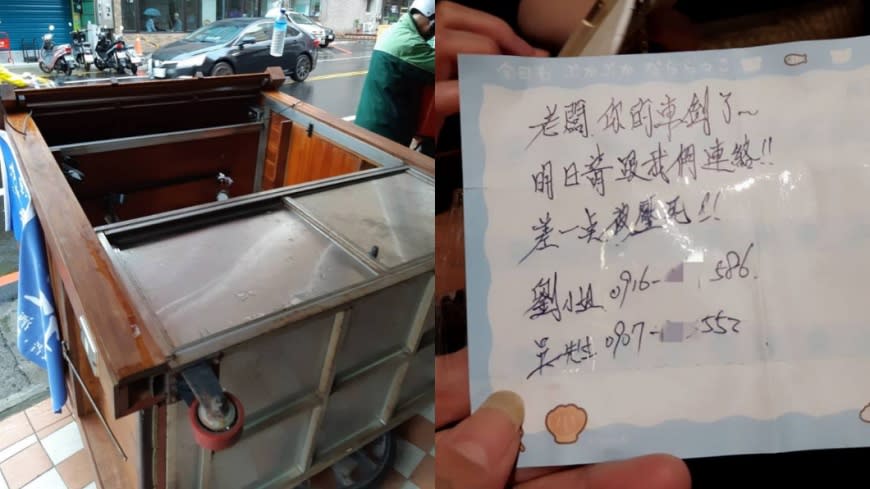 今日も ぷかぷか
老闆你的車倒了~
明日請跟我們連絡!!
差一点被壓死!!
劉小姐 0916- 586.
吳先生 0907- 552